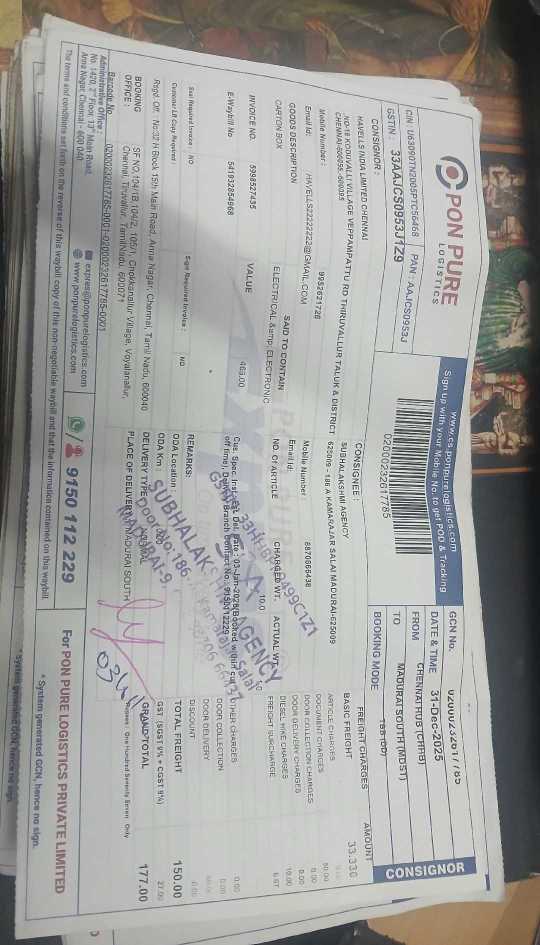 PON PURE
LOGISTICS
www.cs-ponpurelogistics.com
Sign up with your Mobile No. to get POD & Tracking
CIN : U63090TN2005PTC56468 PAN : AAJCS0953J
GSTIN : 33AAJCS0953J1Z9
02000232617785
GCN No. 02000232617785
DATE & TIME 31-Dec-2025
FROM CHENNAI HUB (CHHB)
TO MADURAI SOUTH (MDST)
BOOKING MODE
CONSIGNOR
CONSIGNOR :
HAVELLS INDIA LIMITED CHENNAI
NO-16 KODUVALLI VILLAGE VEPPANPATTU RD THIRUVALLUR TALUK & DISTRICT
Mobile Number : 9952621726
Email Id: HAVELLS22222222@GMAIL.COM
CONSIGNEE :
SUBHALAKSHMI AGENCY
625009 - 186 A KAMARAJAR SALAI MADURAI-625009
Mobile Number 8870666438
Email Id:
GOODS DESCRIPTION SAID TO CONTAIN NO. OF ARTICLE CHARGED WT. ACTUAL WT.
CARTON BOX ELECTRICAL &amp; ELECTRONIC 10.0
INVOICE NO. 5995527435 VALUE 463.00
E-Waybill No 541932854968
Sul Required Invoice : NO Sign Required Invoice : NO
Customer LR Copy Required :
Regd. Off : No:32 H Block 15th Main Road, Anna Nagar, Chennai, Tamil Nadu, 600040
BOOKING OFFICE : SF.NO.1041B,104/2, 105/1, Chokkanallur Village, Vayalanallur,
Chennai, Tiruvallur, TamilNadu, 600071
Barcode No 02000232617785-0001-02000232617785-0001
REMARKS:
ODA Location :
ODA Km :
DELIVERY TYPE
PLACE OF DELIVERY MADURAI SOUTH
SUBHALAKSHMI AGENCY
FREIGHT CHARGES AMOUNT
BASIC FREIGHT 33.330
ARTICLE CHARGES
DOCUMENT CHARGES 50.00
DOOR COLLECTION CHARGES 0.00
DOOR DELIVERY CHARGES 0.00
DIESEL HIKE CHARGES 10.00
FREIGHT SURCHARGE 6.67
OTHER CHARGES 0.00
DOOR COLLECTION 0.00
DOOR DELIVERY
DISCOUNT 0.00
TOTAL FREIGHT 150.00
GST (SGST 9% + CGST 9%) 27.00
GRAND TOTAL 177.00
One Hundred Seventy Seven Only
Administrative Office :
No. 1420, 2nd Floor, 13th Main Road,
Anna Nagar, Chennai - 600 040
expres@ponpurelogistics.com
www.ponpurelogistics.com
9150 112 229
For PON PURE LOGISTICS PRIVATE LIMITED
The terms and conditions set forth on the reverse of this waybill copy of this non-negotiable waybill and that the information contained on this waybill.
* System generated GCN, hence no sign.